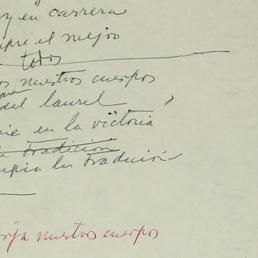 y en carrera
pre el mejor
todos
os nuestros cuerpos
del laurel
en la victoria
la tradición
la tradición
nuestros cuerpos